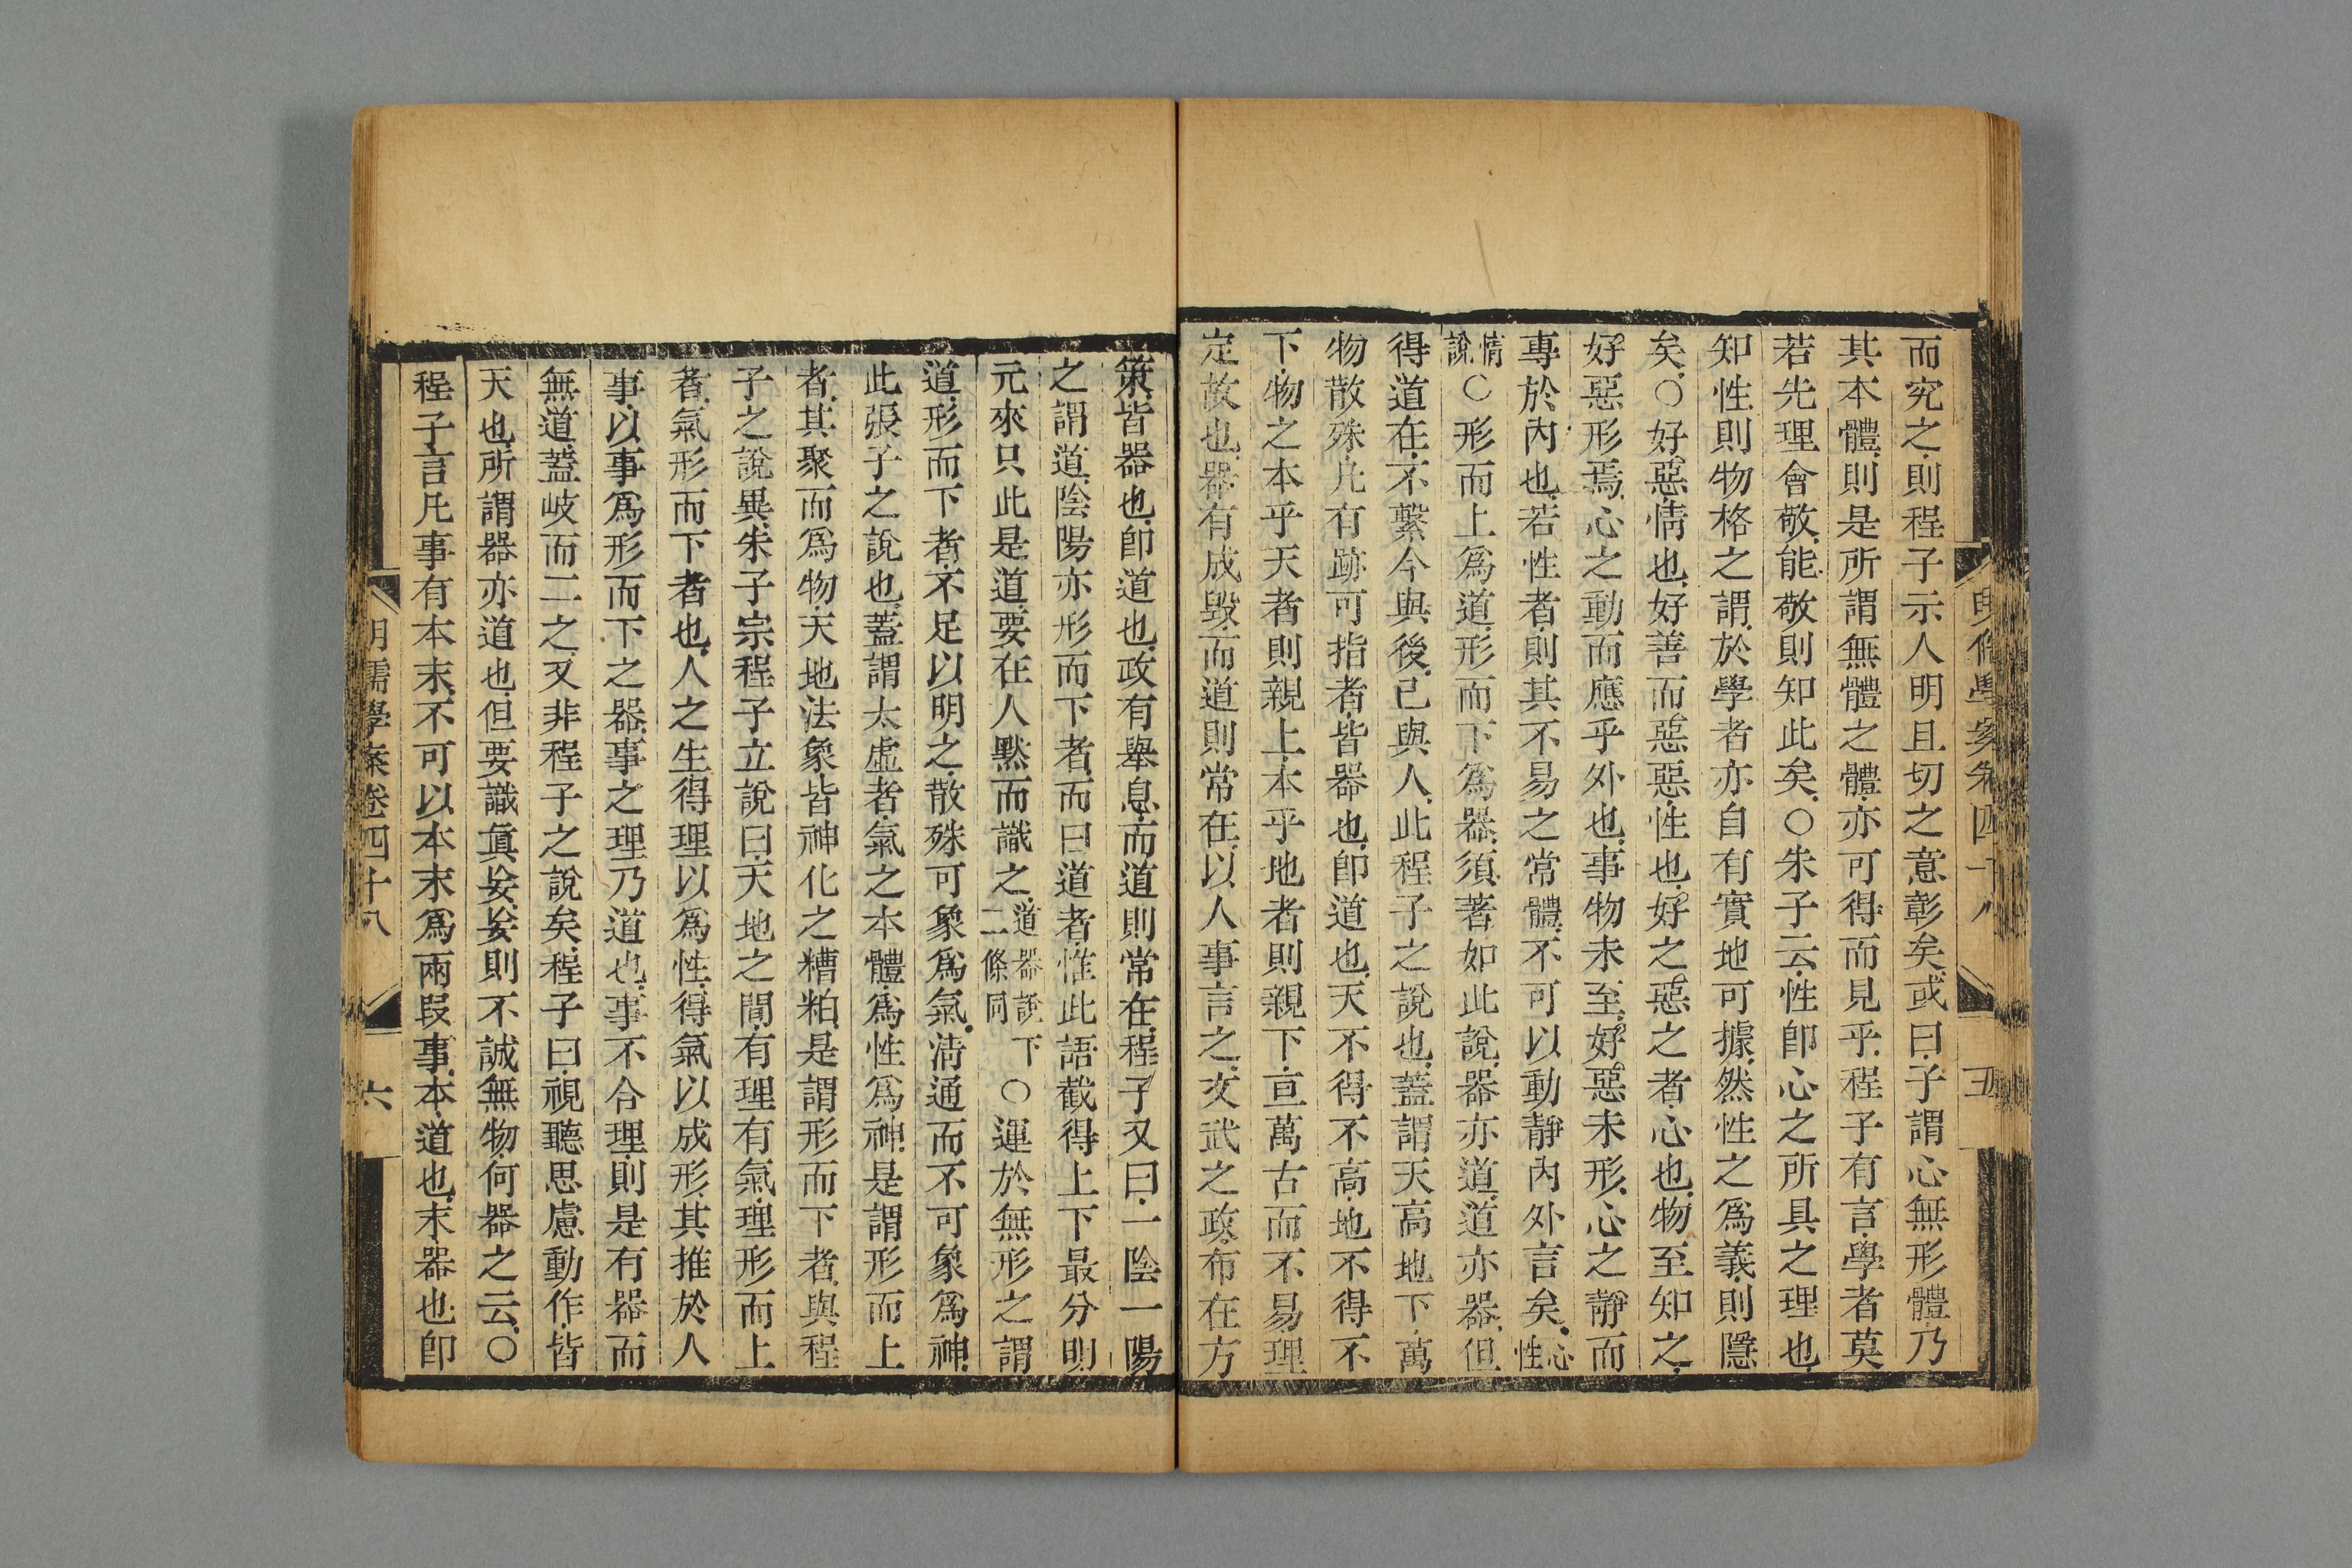 明儒學案卷四十八 五
而究之則程子示人明且切之意彰矣或曰子謂心無形體乃
其本體則是所謂無體之體亦可得而見乎程子有言學者莫
若先理會敬能敬則知此矣○朱子云性卽心之所具之理也
知性則物格之謂於學者亦自有實地可據然性之爲義則隱
矣○好惡情也好善而惡惡性也好之惡之者心也物至知之
好惡形焉心之動而應乎外也事物未至好惡未形心之靜而
專於內也若性者則其不易之常體不可以動靜內外言矣心性
情說○形而上爲道形而下爲器須著如此說器亦道道亦器但
得道在不繫今與後己與人此程子之說也蓋謂天高地下萬
物散殊凡有跡可指者皆器也卽道也天不得不高地不得不
下物之本乎天者則親上本乎地者則親下亘萬古而不易理
定故也器有成毀而道則常在以人事言之文武之政布在方
策皆器也卽道也政有舉息而道則常在程子又曰一陰一陽
之謂道陰陽亦形而下者而曰道者惟此語截得上下最分明
元來只此是道要在人默而識之道器說下二條同○運於無形之謂
道形而下者不足以明之散殊可象爲氣淸通而不可象爲神
此張子之說也蓋謂太虛者氣之本體爲性爲神是謂形而上
者其聚而爲物天地法象皆神化之糟粕是謂形而下者與程
子之說異朱子宗程子立說曰天地之間有理有氣理形而上
者氣形而下者也人之生得理以爲性得氣以成形其推於人
事以事爲形而下之器事之理乃道也事不合理則是有器而
無道蓋岐而二之又非程子之說矣程子曰視聽思慮動作皆
天也所謂器亦道也但要識眞妄妄則不誠無物何器之云○
程子言凡事有本末不可以本末爲兩段事本道也末器也卽
明儒學案卷四十八 六